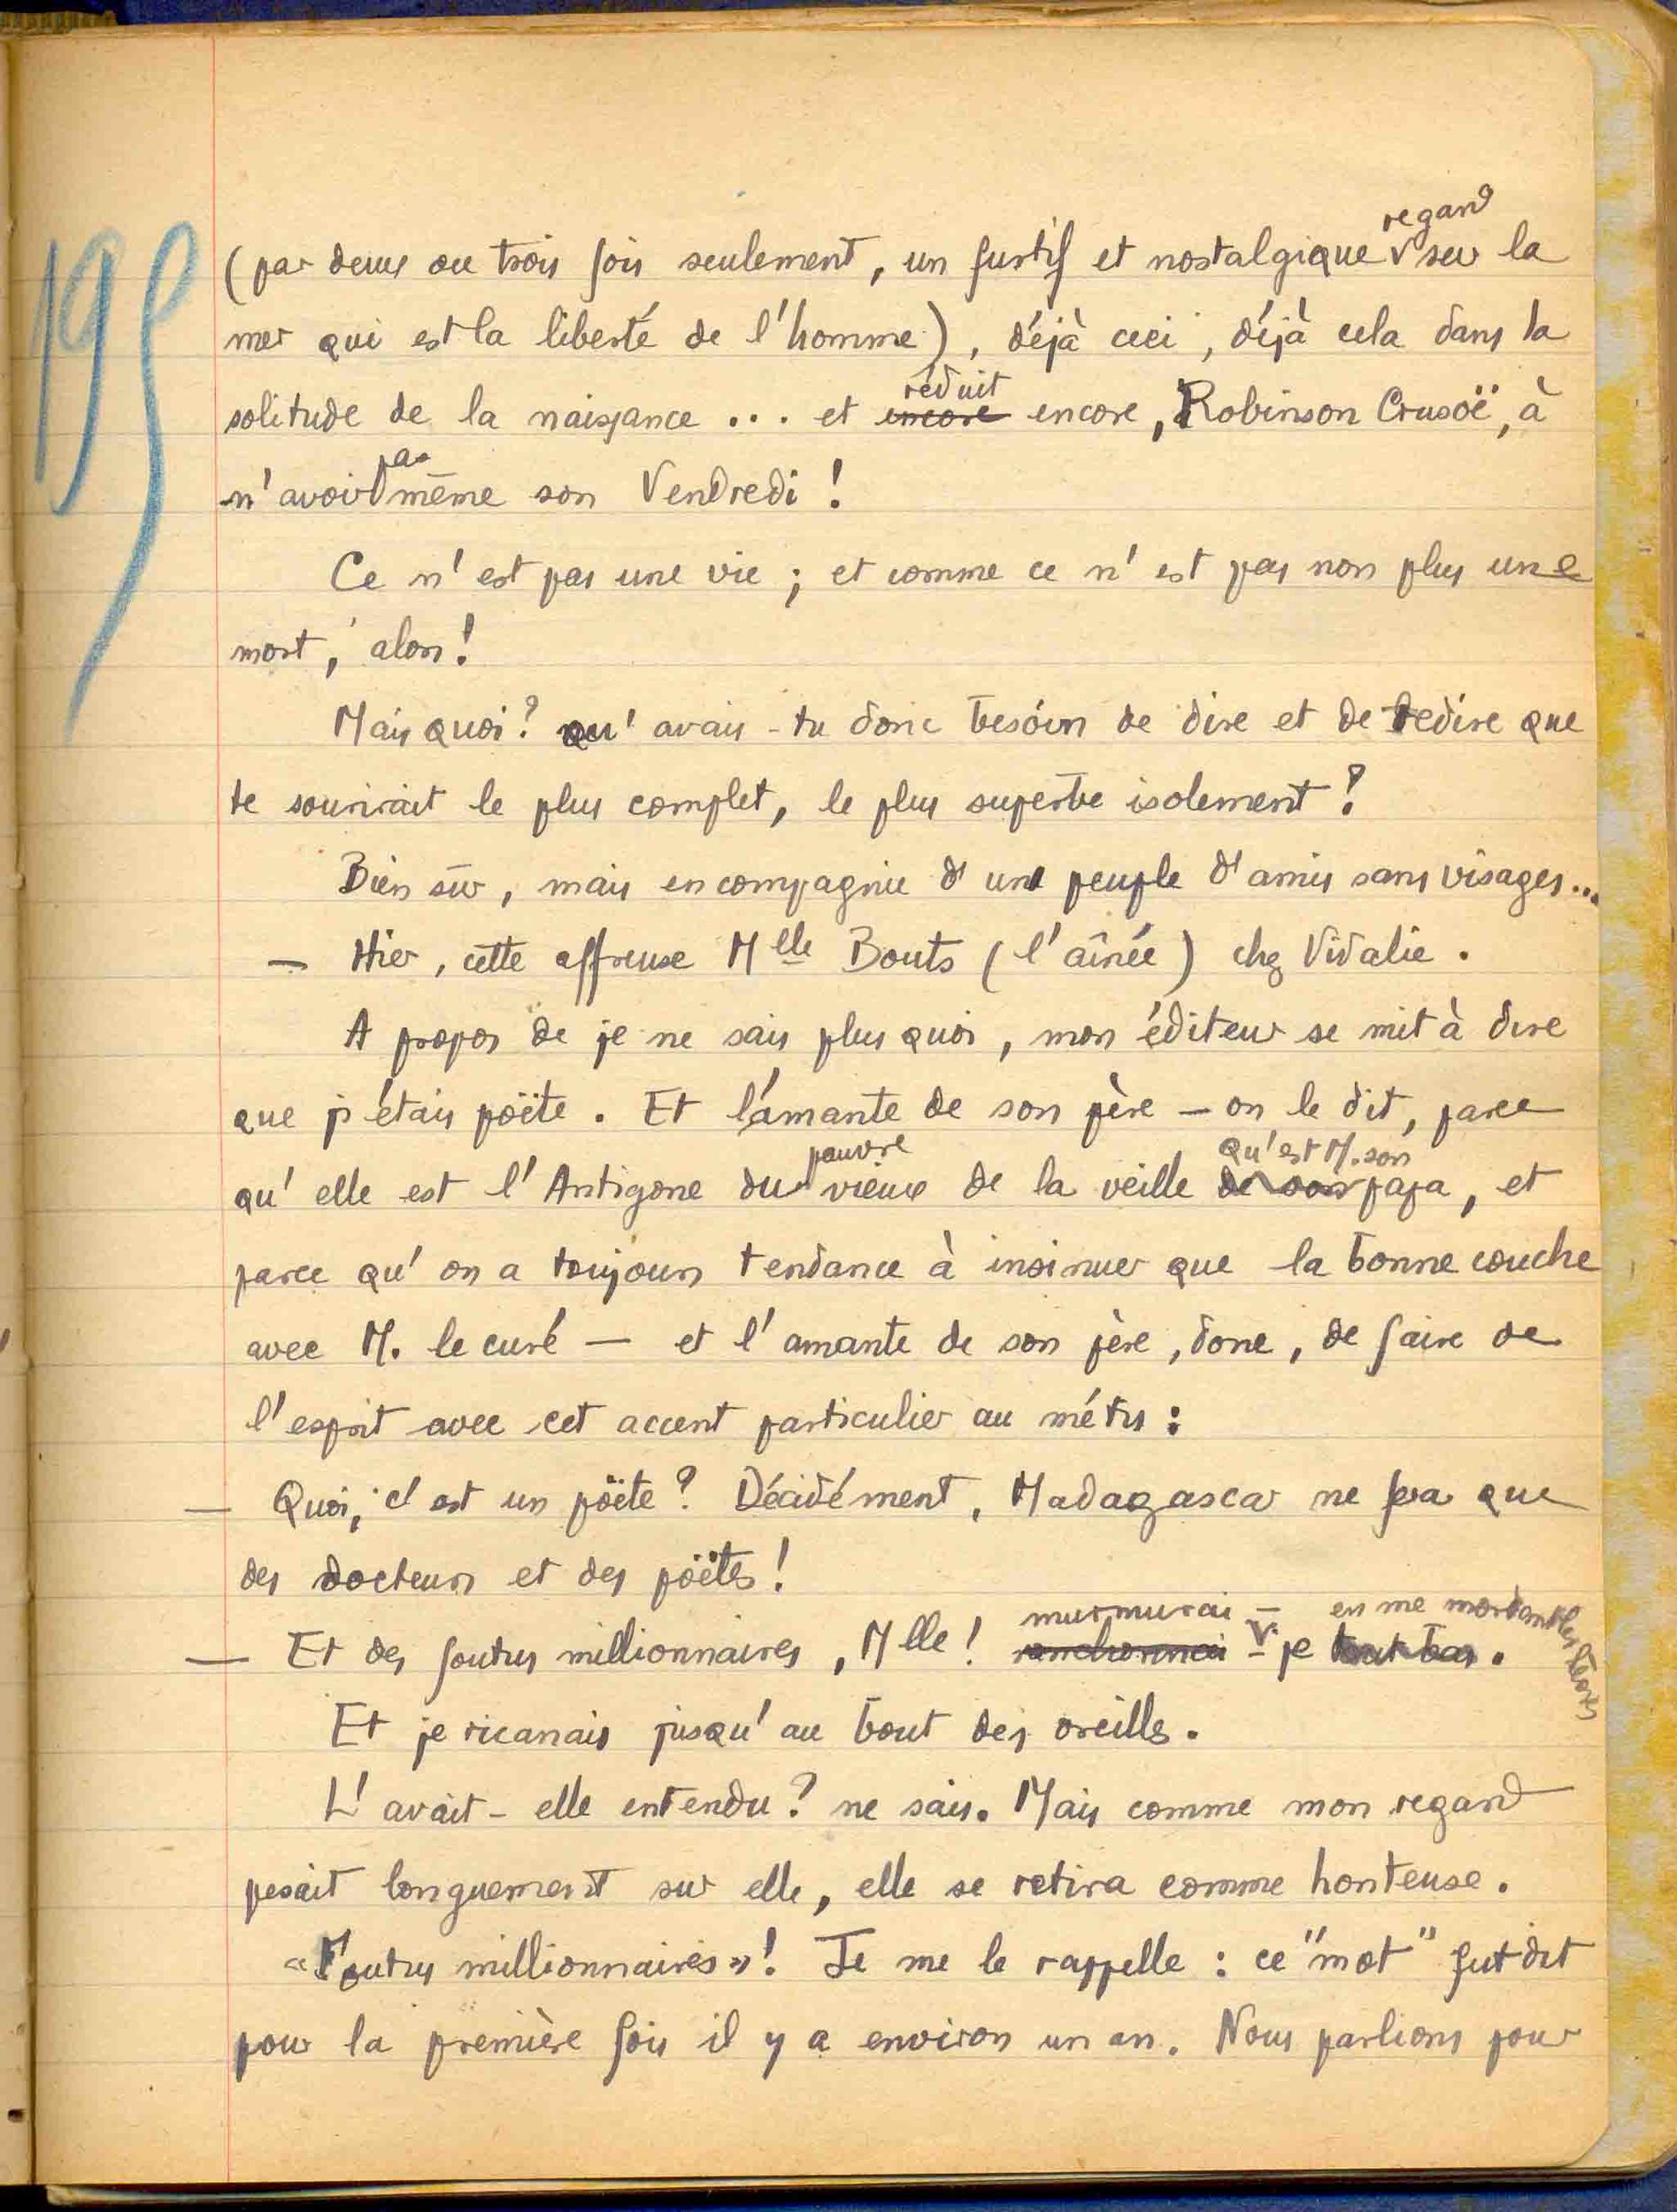 195
(par deux ou trois fois seulement, un furtif et nostalgique regard sur la
mer qui est la liberté de l'homme), déjà ceci, déjà cela dans la
solitude de la naissance ... et encore réduit encore, Robinson Crusoë, à
n'avoir pas même son Vendredi !
Ce n'est pas une vie ; et comme ce n'est pas non plus une
mort, alors !
Mais quoi ? qu'avais-tu donc besoin de dire et de redire que
te sourirait le plus complet, le plus superbe isolement ?
Bien sûr, mais en compagnie d'un peuple d'amis sans visages...
— Hier, cette affreuse Mlle Bouts (l'aînée) chez Vidalie.
A propos de je ne sais plus quoi, mon éditeur se mit à dire
que j'étais poëte. Et l'amante de son père — on le dit, parce
qu'elle est l'Antigone du pauvre vieux de la veille de son qu'est M. son papa, et
parce qu'on a toujours tendance à insinuer que la bonne couche
avec M. le curé — et l'amante de son père, donc, de faire de
l'esprit avec cet accent particulier au métis :
— Quoi, c'est un poëte ? Décidément, Madagascar ne fera que
des docteurs et des poëtes !
— Et des foutus millionnaires, Mlle ! murmurai-je en me mordant les dents tout bas.
Et je ricanais jusqu'au bout des oreilles.
L'avait-elle entendu ? ne sais. Mais comme mon regard
pesait longuement sur elle, elle se retira comme honteuse.
« Foutus millionnaires » ! Je me le rappelle : ce "mot" fut dit
pour la première fois il y a environ un an. Nous parlions pour